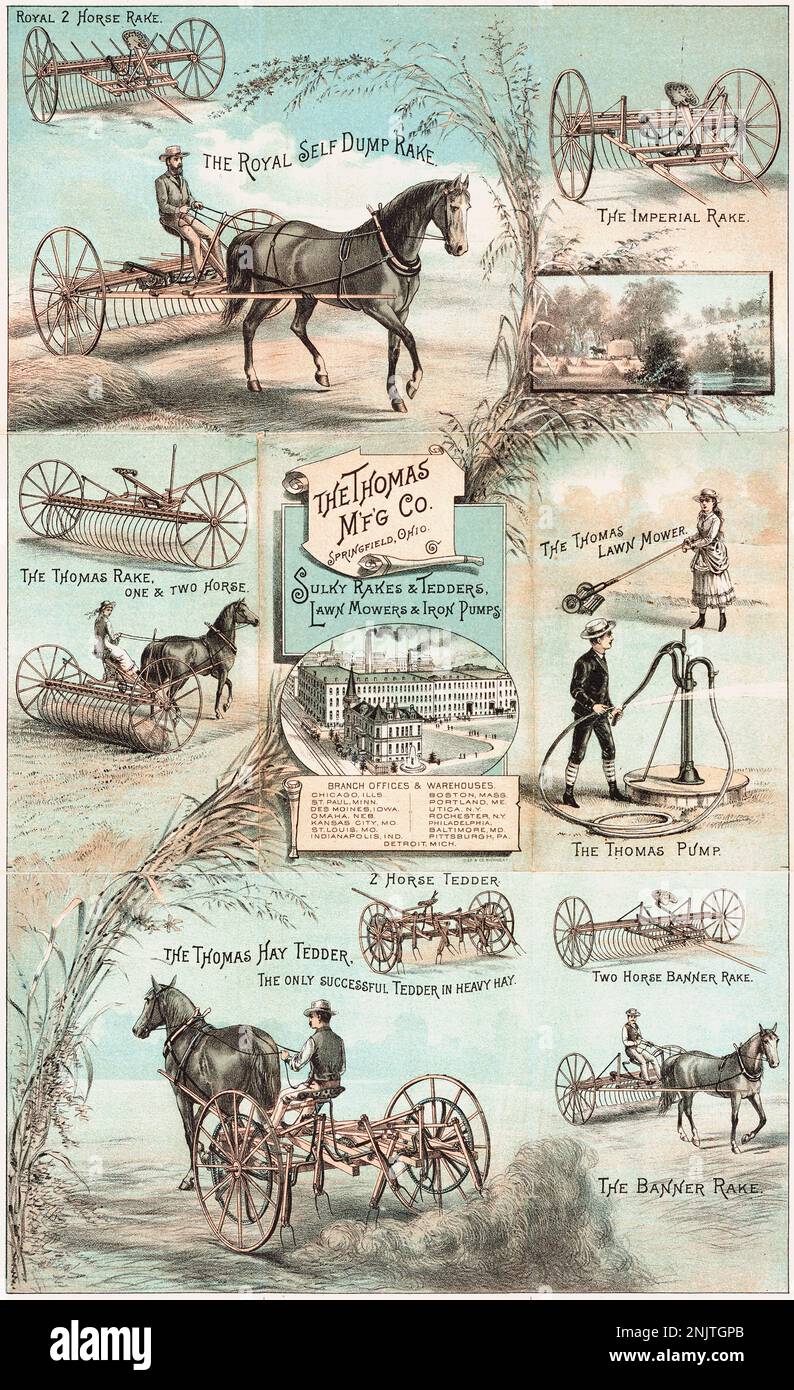 ROYAL 2 HORSE RAKE.
THE ROYAL SELF DUMP RAKE.
THE IMPERIAL RAKE.
THE THOMAS RAKE,
ONE & TWO HORSE.
THE THOMAS
M'F'G CO.
SPRINGFIELD, OHIO.
SULKY RAKES & TEDDERS,
LAWN MOWERS & IRON PUMPS
THE THOMAS
LAWN MOWER.
BRANCH OFFICES & WAREHOUSES.
CHICAGO, ILLS.
ST. PAUL, MINN.
DES MOINES, IOWA.
OMAHA, NEB.
KANSAS CITY, MO.
ST. LOUIS, MO.
INDIANAPOLIS, IND.
BOSTON, MASS.
PORTLAND, ME.
UTICA, N.Y.
ROCHESTER, N.Y.
PHILADELPHIA,
BALTIMORE, MD.
PITTSBURGH, PA.
DETROIT, MICH.
THE THOMAS PUMP.
2 HORSE TEDDER.
THE THOMAS HAY TEDDER,
THE ONLY SUCCESSFUL TEDDER IN HEAVY HAY.
TWO HORSE BANNER RAKE.
THE BANNER RAKE.
alamy
Image ID: 2NJTGPB
www.alamy.com